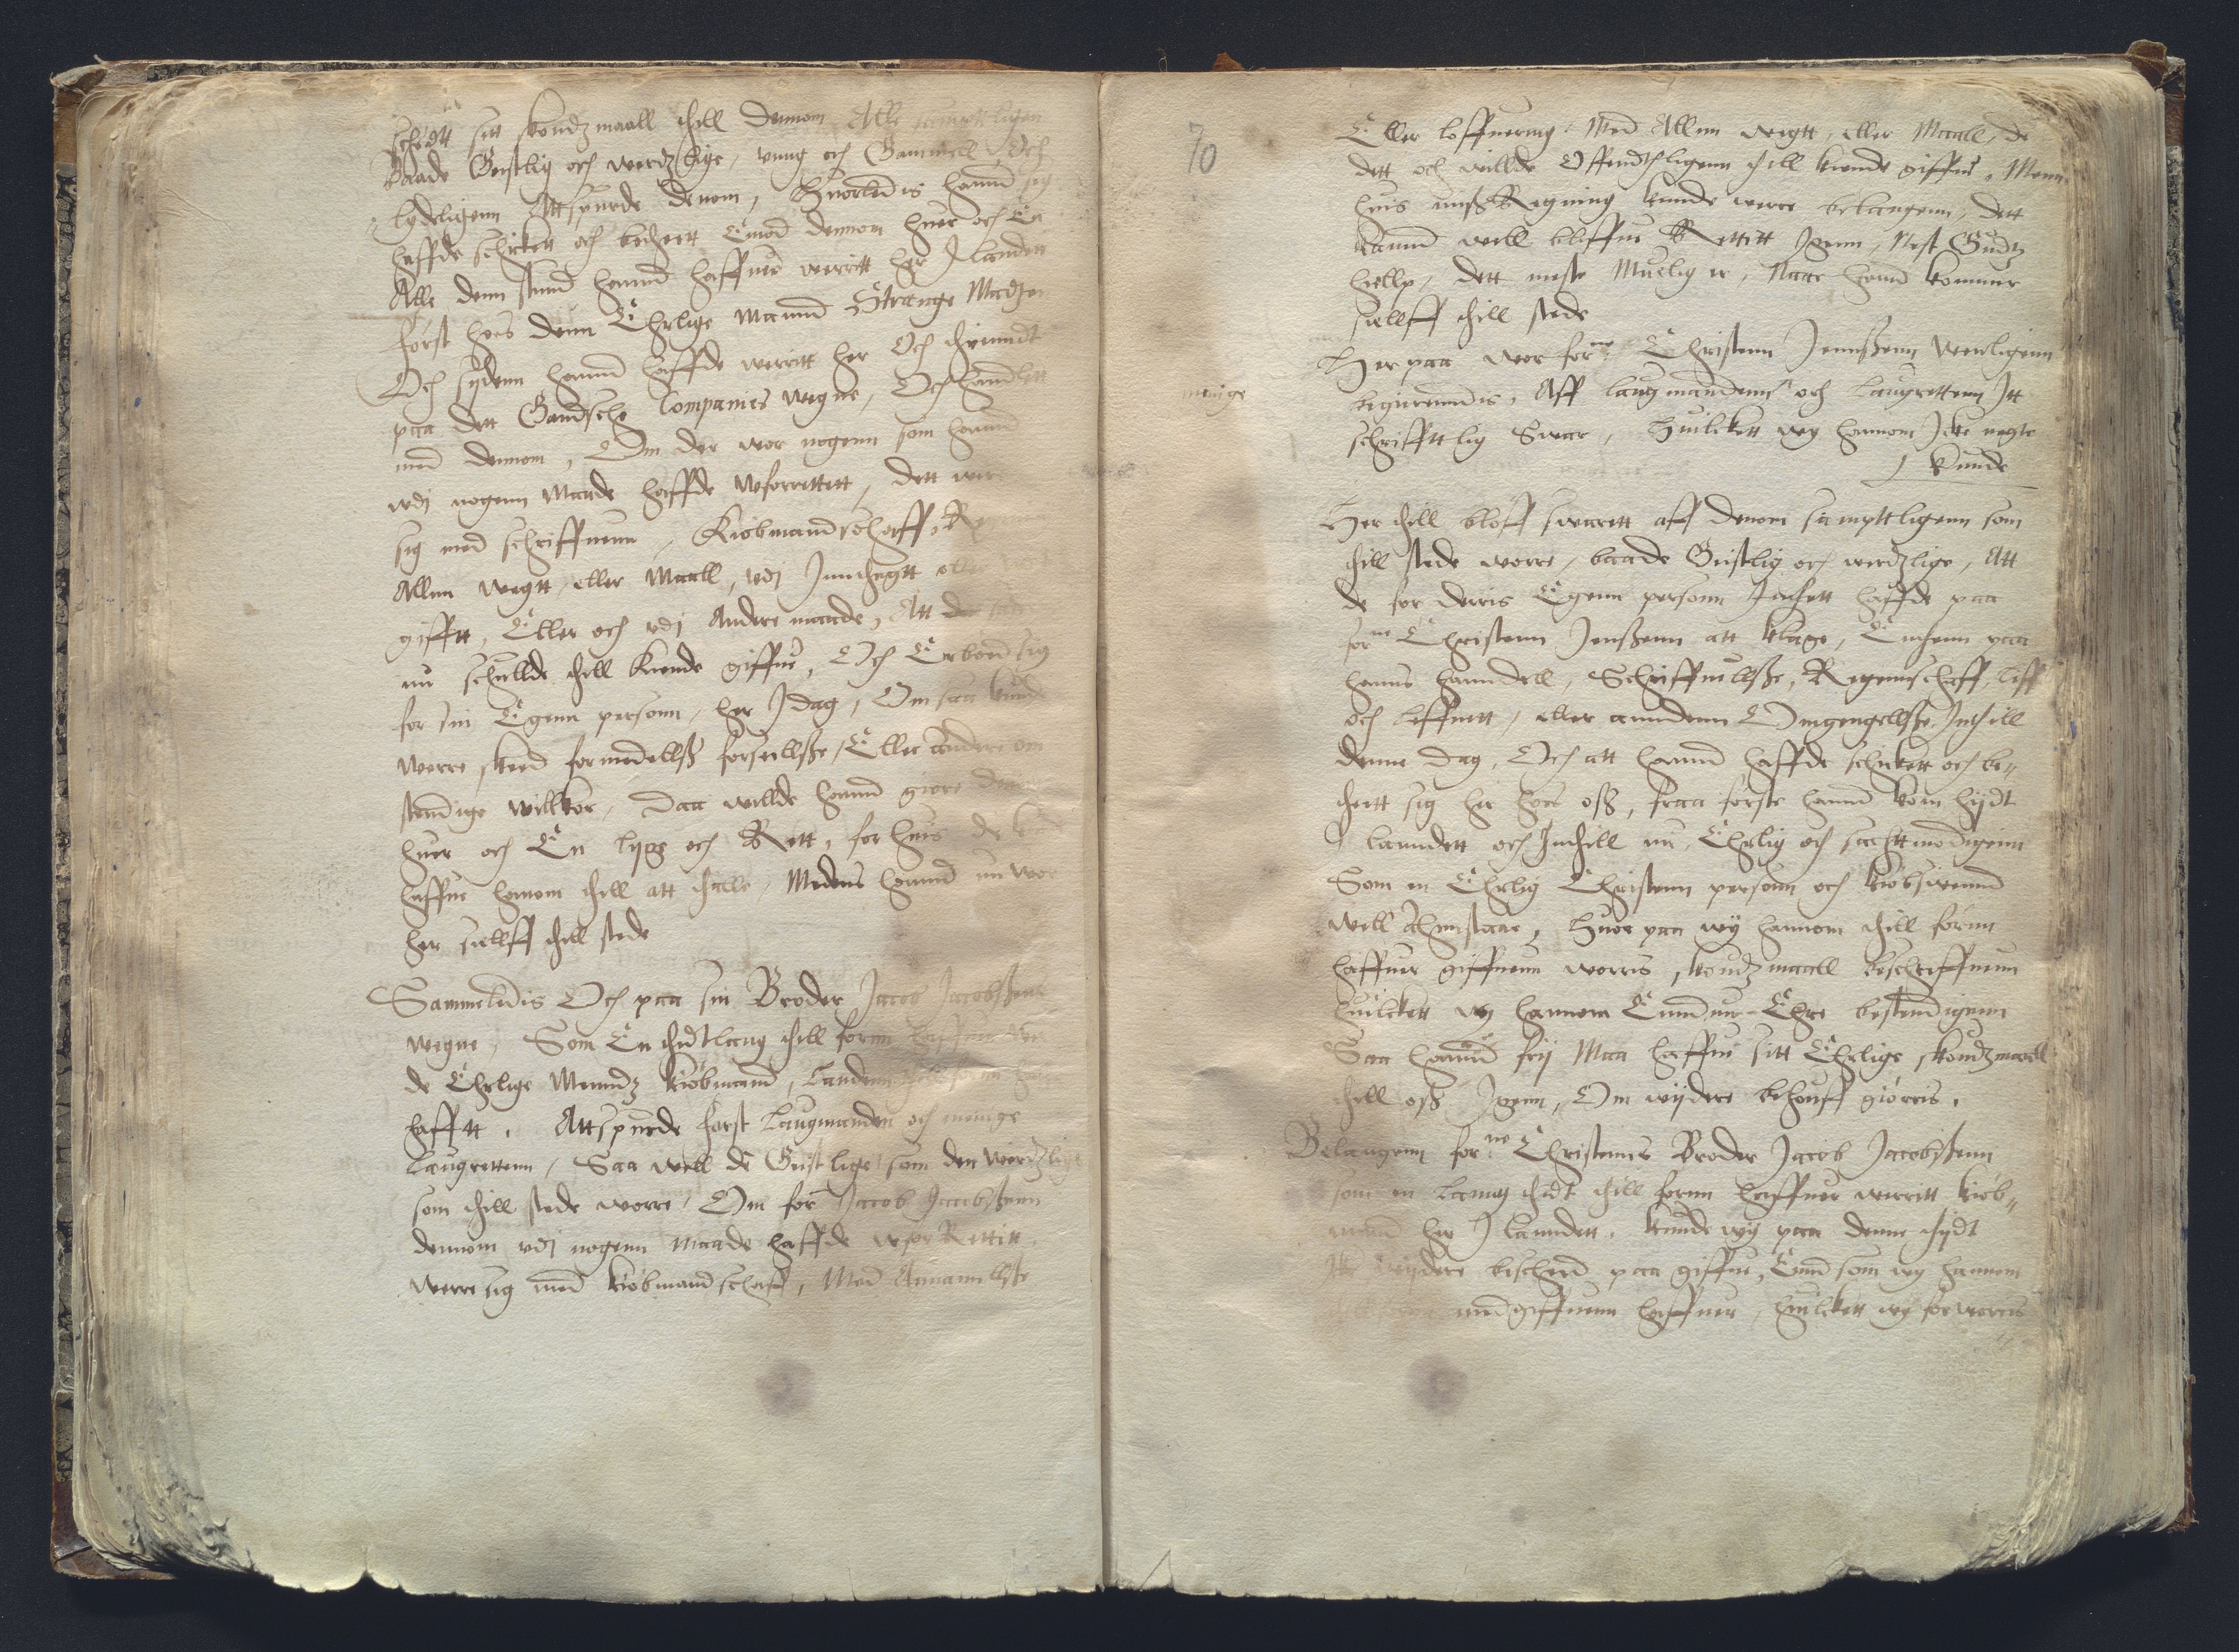 schøtt sitt skudzmaall thill dennom Alle sampttligen
Baade Geistlig och werdzlige, vung och Gammell, Och
lydeligenn Attspurde denom, Huorledis hannd sig
haffde schicket och betheett Emod dennom huer och En
Alle denn stund hannd haffuer werritt her J landett
først hoes denn Ehrlige Mannd Strange Madzen
Och sydenn hannd haffde werritt her Och thiennt
paa dett Gandsche Companies wegne, Och handlett
med dennom, Om der wor nogenn som hannd
wdj nogenn Maade haffde Wforrettett, dett were
sig med schriffuenn, Kiøbmandschaff,
Allnn wegtt, eller Maall, vdj Jnntegtt eller
gifftt, Eller och vdj Andere maade, Att de
nu schullde thill kiende giffue, Och Erbød sig
for sin Egenn personn, her Jdag, Om saa kunde
werre skeed formedellsß forseellsße, Eller andere om
stendige willkor, Daa willde hannd giøre
huer och En lyge och Rett, for huis de
haffue hannom thill att thalle, Medens hannd nu wor
her siellff thill stede
Sammeledis Och paa sin Broder Jacob Jacobsßens
wegne, Som En thidtlaang thill forne haffuer
de Ehrlige Menndz kiøbmand,
hafftt. Attspurde først Laugmanden och menige
Laugrettenn, Saa well de Geistlige som den Werdzlige
som thill stede worre, Om forne Jacob Jacobsßenn
dennom vdj nogenn maade haffde wforRettitt.
werre sig med kiøbmandschaff, Med Annamellsße
70
Eller løffuering. Med Allnn wegtt, eller Maall, de
dett och willde Offendthligenn thill kiende giffue. Menn
huis misßRegning kunde were belangenn, dett
kannd well bliffue Rettitt Jgenn, Nest Gudtz
hiellp, dett meste Muelig er, Naar hannd kommer
siellff thill stede
Her paa wor forne Christenn Jennsßenn Wenligenn
menige
begierendis, Aff laugmandenn och Laugrettenn Jtt
schrifftlig Swar, Huilckett wy hannom Jcke negte
kunde
Her thill bløff swarett aff denom sampttligenn som
thill stede worre, baade Geistlig och werdzlige, Att
de for derris Egenn personn Jnthett haffde paa
forne Christenn Jensßenn att klage, Enthenn paa
hanns hanndell, Schriffuellsße, Regennschaff, liff
och leffnett, eller anndenn Omgengellsße Jnthill
denne dag, Och att hannd haffde schickett och be„
theett sig her hoes osß, fraa første hannd kom hijdt
J lanndett och Jnthill nu, Ehrlig och sachttmodigenn
Som en Ehrlig Christenn personn och kiøbswennd
well Ahnnstaar, Huor paa wy hannom thill fornn
haffuer giffuenn worris skudzmaall beschriffuenn
huilckett wy hannom Enndnu Ehre bestendigenn
Saa hannd frij Maa haffue sitt Ehrlige skudzmaall
thill osß Jgenn, Om wijdere behouff giøris.
Belangenn forne Christenns Broder Jacob Jacobsßenn
som en laang thidt thill fornn haffuer werritt kiøb„
mand her J lanndett. kunde wij paa denne thijdt
wijdere bescheed paa giffue, End som wy hannom
med giffuenn haffuer, huilckett wy for worris